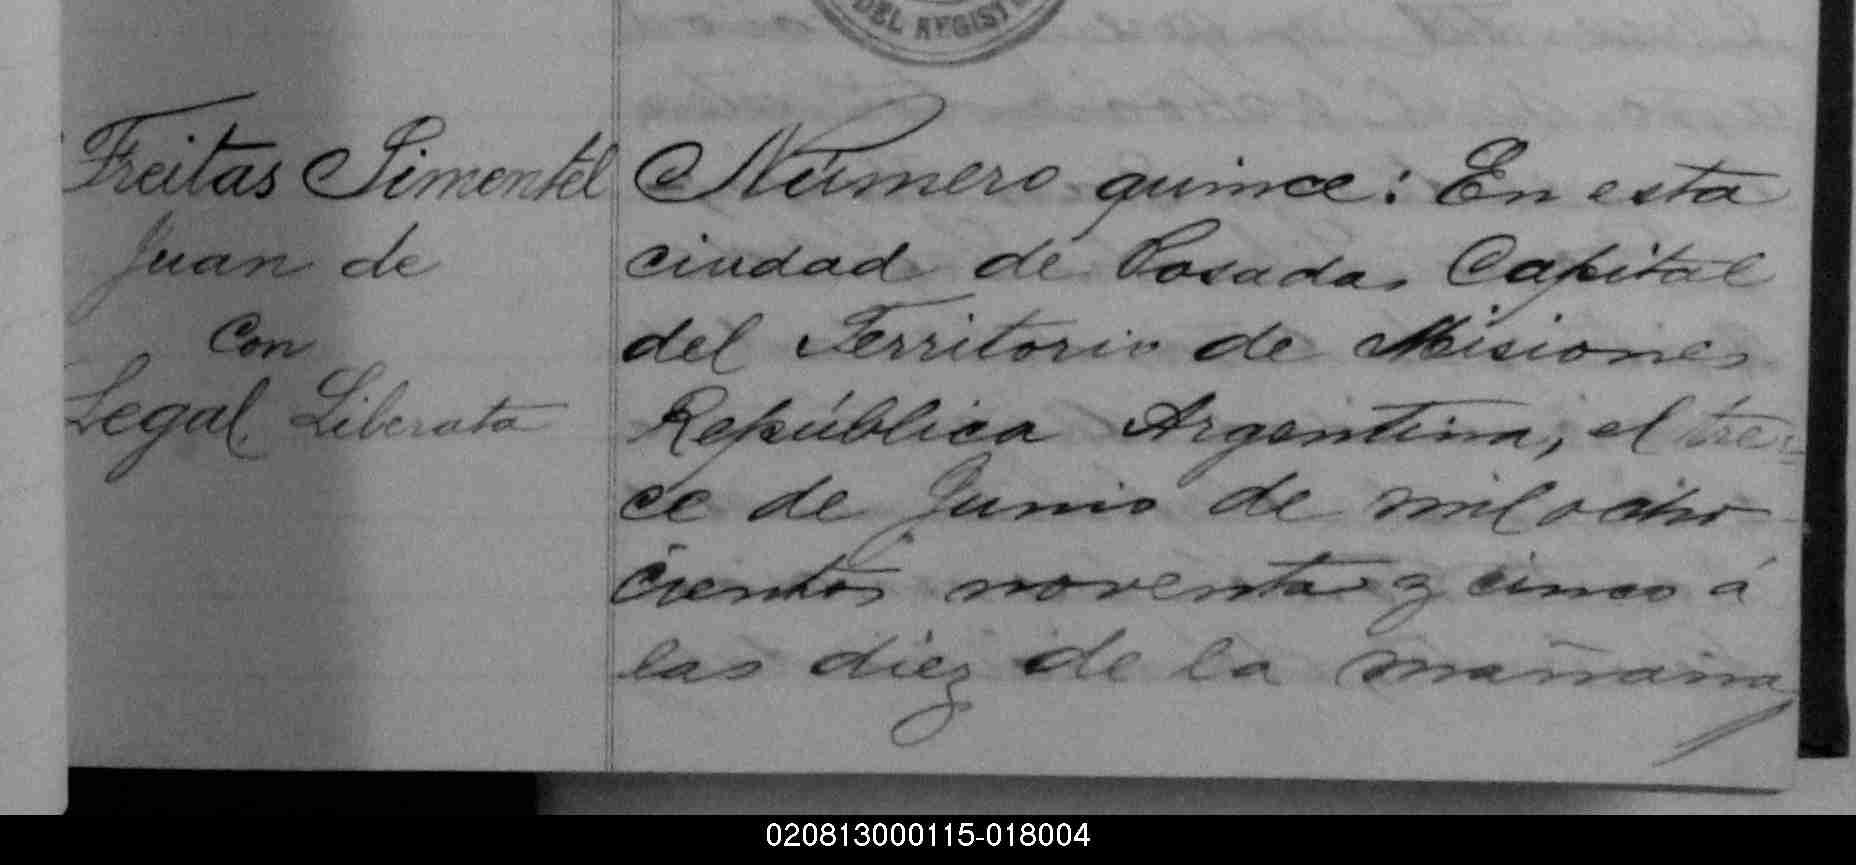 DEL REGISTR
Freitas Pimentel
Juan de
Con
Legal, Liberata
Número quince: En esta
ciudad de Posadas Capital
del Territorio de Misiones
República Argentina, el tre-
ce de Junio de mil ocho
cientos noventa y cinco á
las diez de la mañana,
020813000115-018004